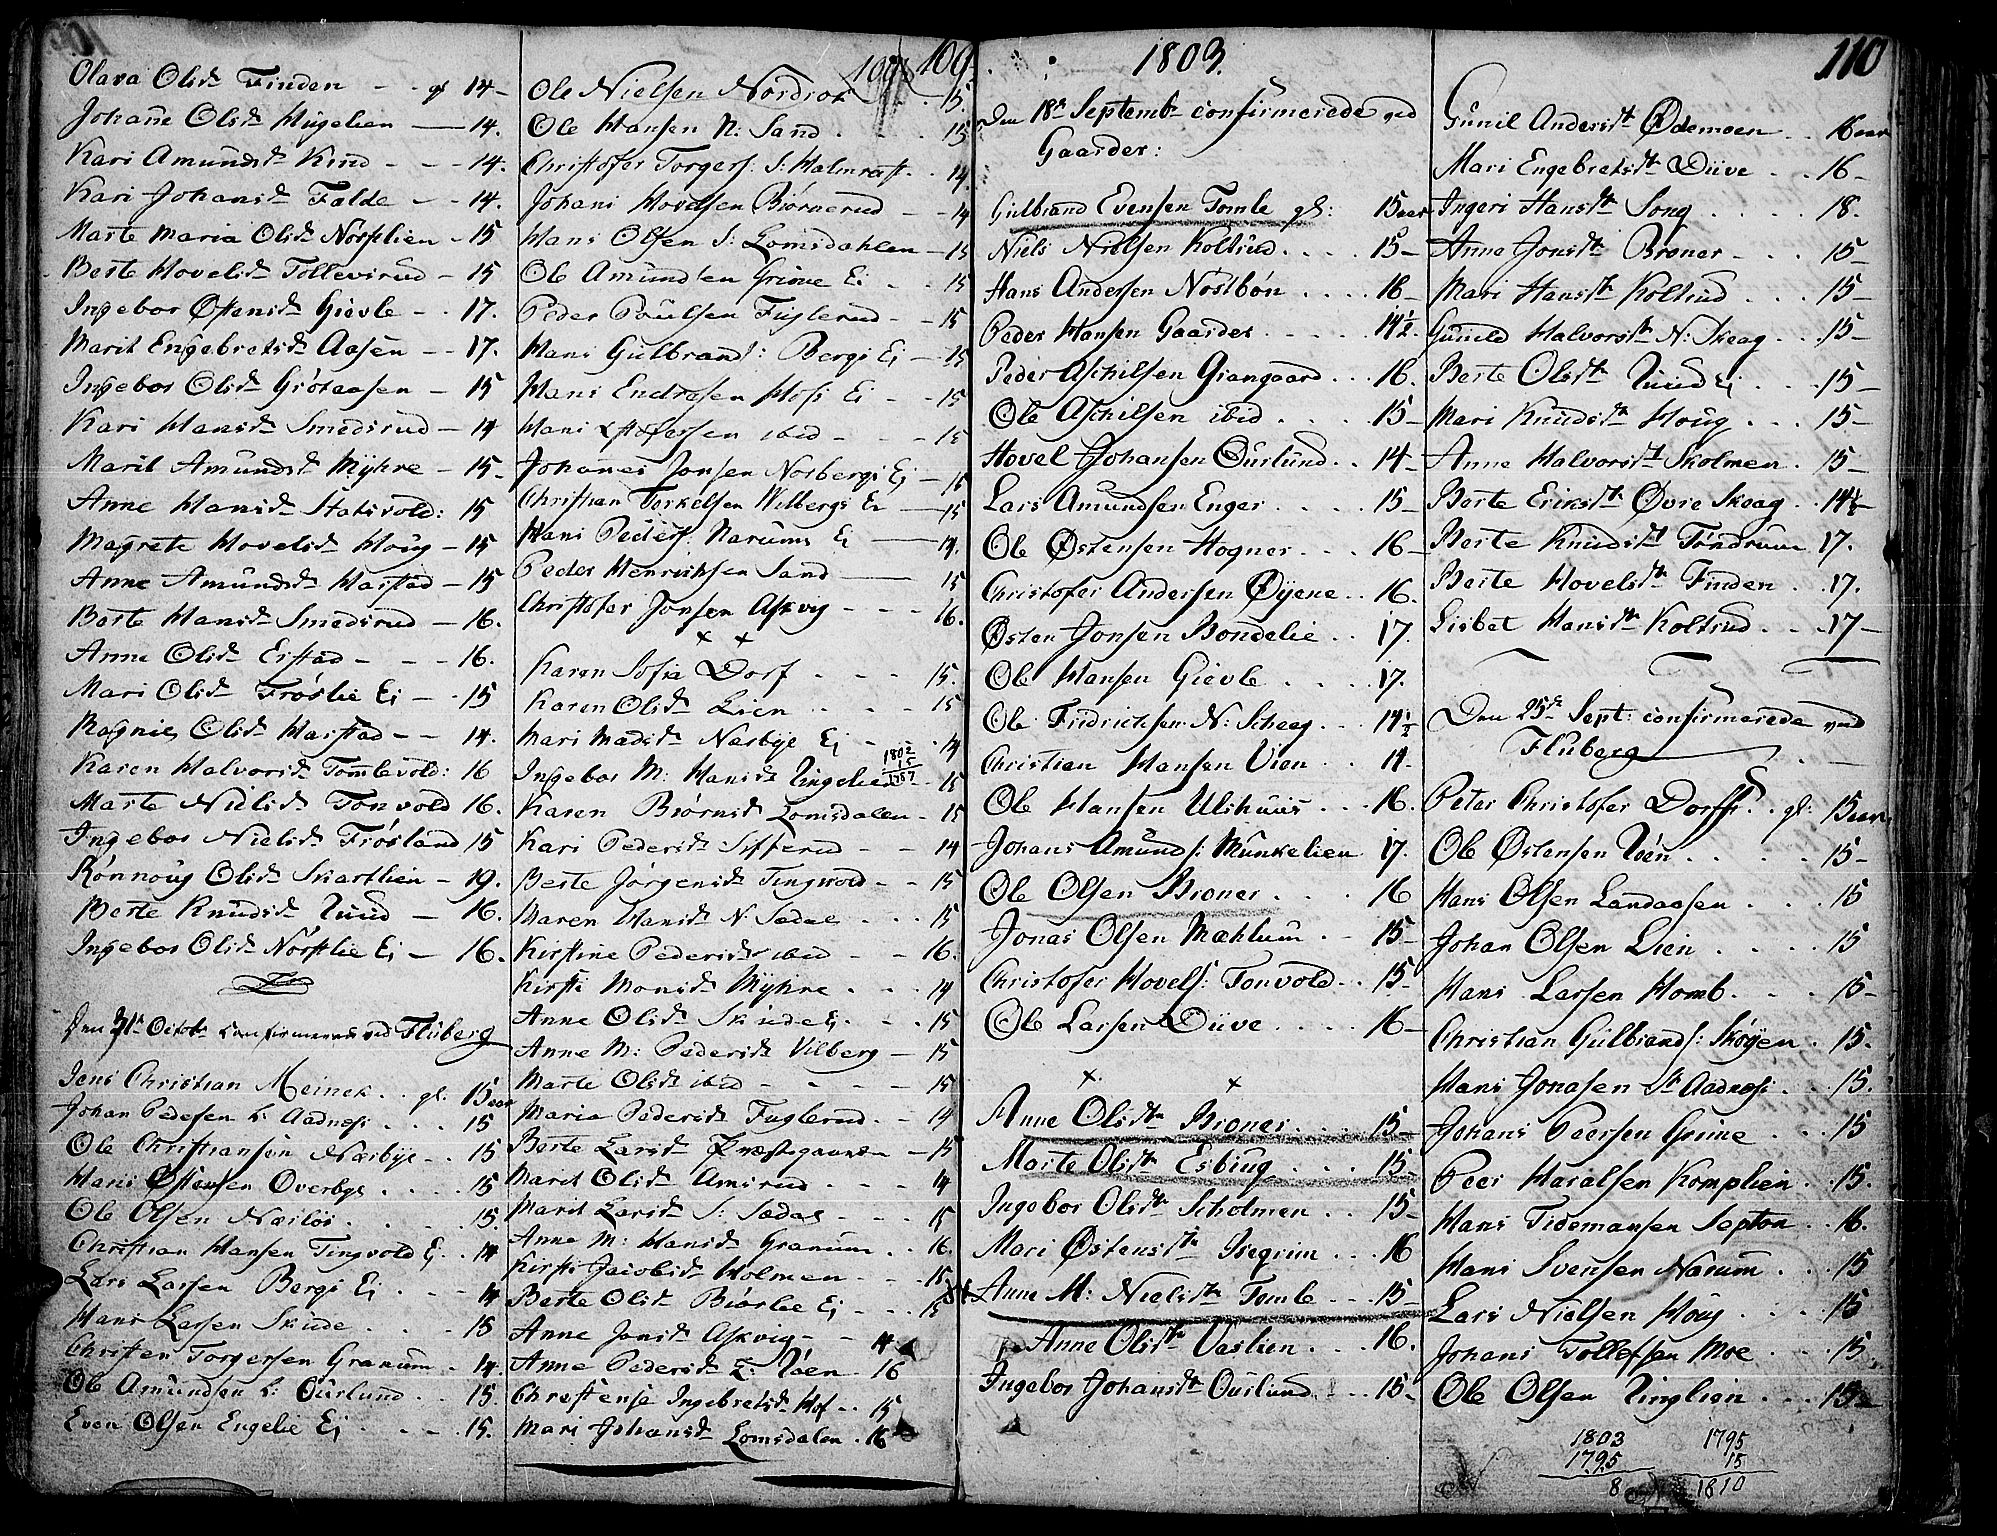 109
Olava Olsdr Finden - - gl 14-
Johanne Olsdr Hugelien — 14.
Kari Amundsdr Kind - - - 14.
Kari Johansdr Falde - - 14.
Marte Maria Olsdr Nørstelien - 15
Berte Hovelsdr Tollevsrud - 15
Ingebor Østensdr Gievle - - 17.
Marit Engebretsdr Aasen - - 17.
Ingebor Olsdr Grøtaasen - 15
Kari Hansdr Smedsrud - 14
Marit Amundsdr Myhre - 15-
Anne Hansdr Statsvold: 15
Magrete Hovelsdr Houg - 15
Anne Amundsdr Harstad - 15
Berte Hansdr Smedsrud - 16.
Anne Olsdr Eistad - - - 16.
Mari Olsdr Frøslie Ei - - 15
Ragnie Olsdr Harstad - - 14.
Karen Halvorsdr Tomlevold: 16
Marte Nielsdr Tonvold 16.
Ingebor Nielsdr Frøsland 15
Rønnoug Olsdr Skartlien - 19.
Berte Knudsdr Ruud - 16.
Ingebor Olsdr Nørstlie Ei - 16.
Den 31te Octobr confirmerede ved Fluberg
Jens Christian Meinek . . gl: 15 aar
Johan Pedersen L: Aadnes . . . 15
Ole Christiansen Nærbye . . 15
Hans Østensen Overbye . . . . 15
Ole Olsen Nærløs . . . . . 15.
Christian Hansen Tingvold E: . 14
Lars Larsen Bergs Ej . - - 14
Hans Larsen Skude . . . 15
Christen Torgersen Granum . 14.
Ole Amundsen L: Ourlund . . 15.
Even Olsen Engelie Ej . - - . 15.
Ole Nielsen Nordrok . . 15.
Ole Hansen N: Sand . . 15
Christofer Torgers: S: Halmrast . . 14.
Johans Hovelsen Biørnerud - - 14
Hans Olsen S: Lomsdahlen - 15
Ole Amundsen Grime Ei - - 15
Peder Poulsen Fuglerud - - 15
Hans Gulbrands: Bergs Ej - 15
Hans Endresen Hofs Ei - - 15
Hans Christofersen ibid - - - 15
Johanes Jonsen Norbergs Ej - 15
Christian Torkelsen Wilbergs Ei — 15
Hans Peders: Narums Ei — 14.
Peder Henrichsen Sand — 15
Christofer Jonsen Askvig - - - 16.
x x
Karen Sofia Dorf . . - - 15.
Karen Olsdr Lien . . - - 15
Mari Madsdr Nærbye Ej - - 14
1802
15
1787
Ingebor M: Hansdr Ringelien - 15
Karen Biørnsdr Lomsdalen - 15
Kari Pedersdr Sifferud - - 14
Berte Jørgensdr Tingvold - - 15
Maren Hansdr N: Sædal . . . 15
Kirstine Pedersdr ibid - - 16.
Kirsti Monsdr Myhre . . . 14
Anne Olsdr Skude Ej . . . 15
Anne M: Pedersdr Vilberg - 15
Marte Olsdr ibid - - - - 15
Maria Pedersdr Fuglerud . - 14
Berte Larsdr Præstegaarde - 15
Marit Olsdr Amsrud . - - . 14
Marit Larsdr S: Sædal - - . 15
Anne M: Hansdr Granum . . 16.
Kirsti Jacobsdr Holmen . - . 15
Berte Olsdr Biørlie Ej - . . 15
Anne Jonsdr Askvig - - 14
Anne Pedersdr L: Røen - 16
Christense Ingebretsdr Hof . . 15
Mari Johansdr Lomsdalen . 16
1803.
Den 18de Septembr confirmerede ved
Gaarder:
Gulbrand Evensen Tomle gl: 15 aar
Niels Nielsen Koltrud . . . . 15-
Hans Andersen Nostbøn . . . . 16-
Peder Hansen Gaarder . . . . . 14½-
Peder Aschilsen Grangaard . . . 16.
Ole Aschilsen ibid . . . . 15-
Hovel Johansen Ourlund . . 14-
Lars Amundsen Enger . . . . 15-
Ole Østensen Hogner . . . 16-
Christofer Andersen Øyene . . 16.
Østen Jonsen Bondelie . . 17.
Ole Hansen Gievle . . . . 17.
Ole Fridrichsen N: Scheag . . 14½
Christian Hansen Vien . . 14-
Ole Hansen Ulshuus . . . 16.
Johans Amunds: Munkelien 17.
Ole Olsen Broner . . . . 16
Jonas Olsen Mæhlum . - 15-
Christofer Hovels: Tonvold . . 15-
Ole Larsen Duve . . . . 16-
x x
Anne Olsdtr Broner . . . . 15-
Marte Olsdtr Esbiug . . . 15-
Ingebor Olsdtr Scholmen . . 15-
Mari Østensdtr Isegrim . . . 16
Anne M: Nielsdtr Tomle . . . 15-
Anne Olsdtr Vaslien . . . 16.
Ingebor Johansdtr Ourlund . . . 15-
110
Gunil Andersdtr Ødemoen . . 16 aar
Mari Engebretsdtr Duve . . 16-
Ingeri Hansdtr Song . . . . 18.
Anne Jonsdtr Broner - . . . 15-
Mari Hansdtr Koltrud . . . 15-
Gunild Halvorsdtr N: Skeag . . 15-
Berte Olsdtr Ruud Ej . . . 15-
Mari Knudsdtr Houg . . . 15-
Anne Halvorsdtr Skolmen . 15-
Berte Eriksdtr Øvre Skeag . . 14½-
Berte Knudsdtr Tøndrum 17.
Berte Hovelsdtr Finden . . 17.
Lisbet Hansdtr Koltrud . . . 17-
Den 25de Sept: confirmerede ved
Fluberg
Peter Christofer Dorff . . gl: 15 aar
Ole Østensen Røen . . . . 15-
Hans Olsen Landaasen . . . 15
Johan Olsen Lien . . . . 15
Hans Larsen Homb . . . . 15-
Christian Gulbrands: Skøyen . 15.
Hans Jonasen St Aadnes . . 15.
Johans Peersen Grime . . . 15
Peer Haralsen Kromplien . . 15.
Hans Tidemansen Septon . . 16.
Hans Svensen Narum . . . 15
Lars Nielsen Houg . . . . 15
Johans Tollefsen Moe . . . 15.
Ole Olsen Ringlien . . . 15
1803
1795
8
1795
15
1810